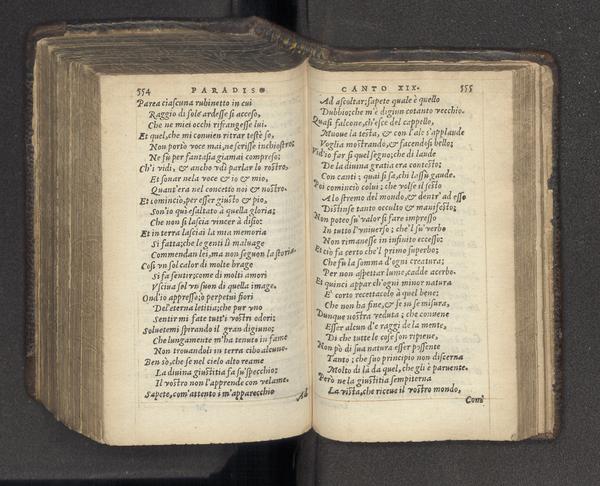 354 PARADISO
Parea ciascuna rubinetto in cui
Raggio di sole ardesse si acceso,
Che ne miei occhi rifrangesse lui.
Et quel, che mi convien ritrar testè so,
Non portò voce mai, ne scrisse inchiostro;
Ne fù per fantasia giamai compreso;
Ch'i vidi, & ancho vdì parlar lo rostro,
Et sonar nela voce & io & mio,
Quant'era nel concetto noi & nostro.
Et comincio, per esser giusto & pio,
Son'io quì esaltato a quella gloria;
Che non si lascia vincer à disio:
Et in terra lasciai la mia memoria
Si fatta; che le genti lì maluage
Commendan lei, ma non seguon la storia.
Così vn sol calor di molte brage
Si fa sentir; come di molti amori
Vsciua sol vn suon di quella image.
Ond'io appresso; ò perpetui fiori
Del'eterna letitia; che pur vno
Sentir mi fate tutt'i vostri odori;
Soluetemi spirando il gran digiuno;
Che lungamente m'ha tenuto in fame
Non trouandoli in terra cibo alcuno.
Ben sò, che se nel cielo alto reame
La diuina giustitia fa su' specchio;
Il vostro non l'apprende con velame.
Sapete, com'attento i m'apparecchio
Ad
CANTO XIX. 355
Ad ascoltar; sapete quale è quello
Dubbio; che m'è digiun cotanto vecchio.
Quasi falcone, ch'esce del cappello,
Muoue la testa, & con l'ale s'applaude
Voglia mostrando, & facendosi bello;
Vid'io far si quel segno; che di laude
De la diuina gratia era contesto
Con canti; quai si sa, chi lassù gaude.
Poi cominciò colui; che volse il sesto
A lo stremo del mondo, & dentr'ad esso
Distinse tanto occulto & manifesto;
Non poteo su' valor si fare impresso
In tutto l'vniuerso; che'l su' verbo
Non rimanesse in infinito eccesso:
Et ciò fa certo che'l primo superbo;
Che fù la somma d'ogni creatura;
Per non aspettar lume, cadde acerbo.
Et quinci appar ch'ogni minor natura
E' corto recettacolo à quel bene;
Che non ha fine, & se in se misura,
Dunque nostra veduta; che conuene
Esser alcun d'e raggi de la mente,
Di che tutte le cose son ripiene,
Non pò di sua natura esser possente
Tanto; che suo principio non discerna
Molto di là da quel, che gli è paruente.
Però ne la giustitia sempiterna
La vista, che riceue il vostro mondo,
Com'